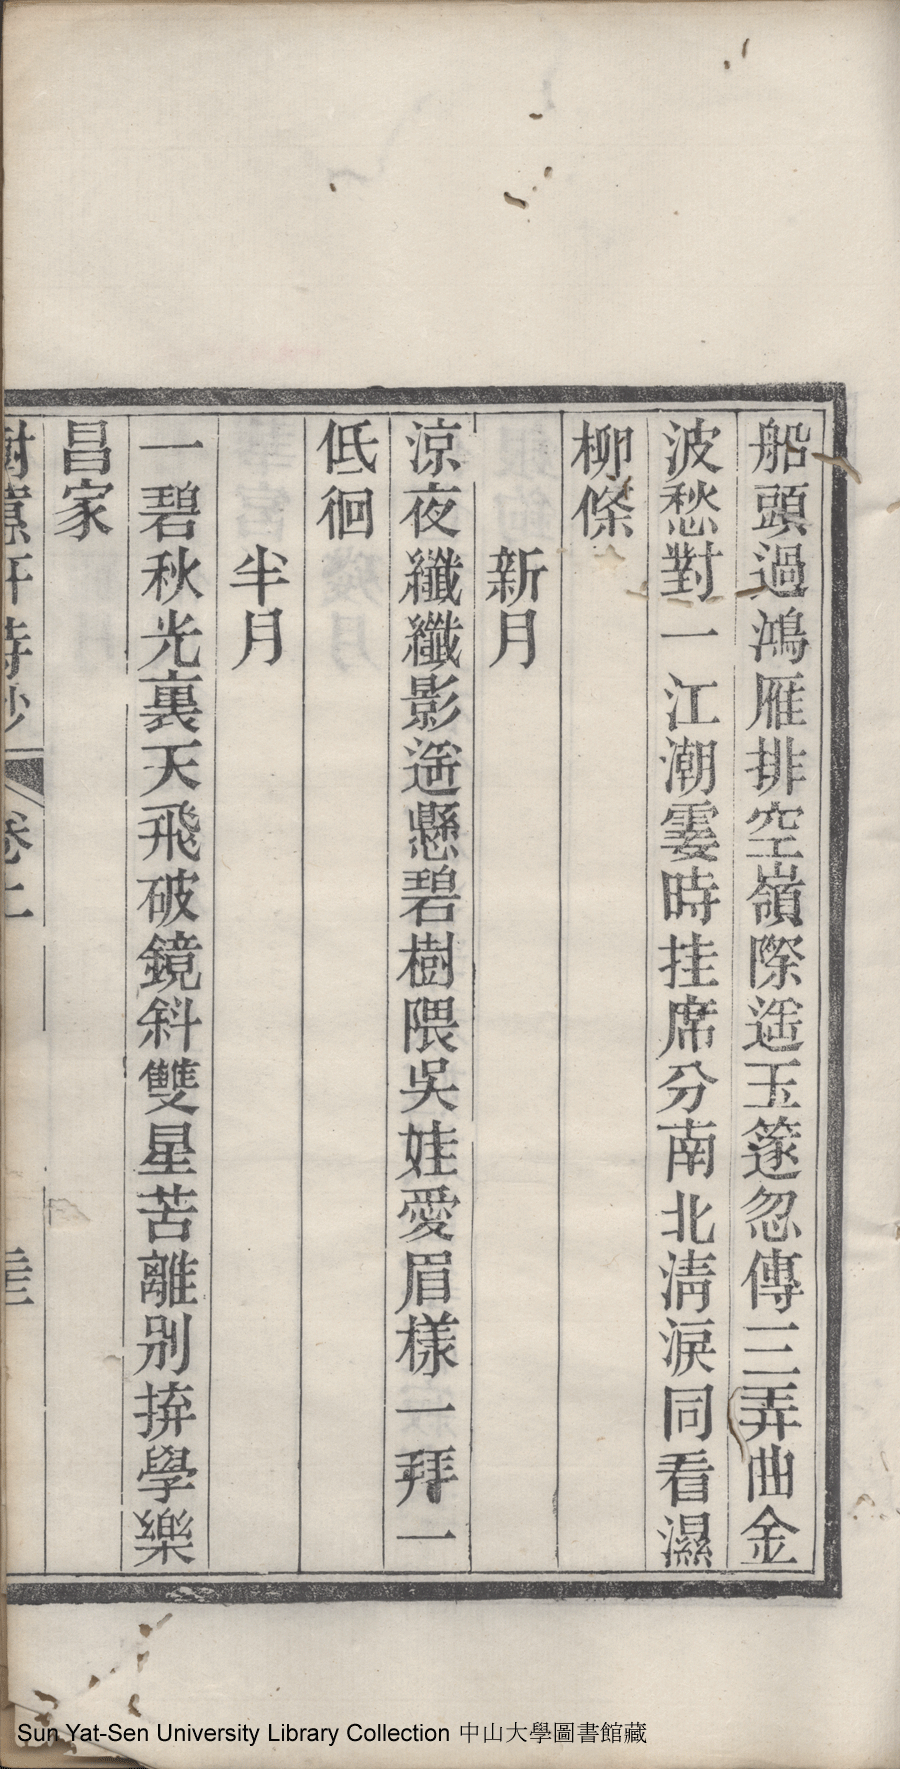 船頭過鴻雁排空嶺際遥玉篴忽傳三弄曲金
波愁對一江潮霎時挂席分南北淸淚同看濕
柳條
新月
涼夜纖纖影遥懸碧樹隈吳娃愛眉樣一拜一
低徊
半月
一碧秋光裏天飛破鏡斜雙星苦離别拚學樂
昌家
軒詩鈔
卷
Sun Yat-Sen University Library Collection 中山大學圖書館藏